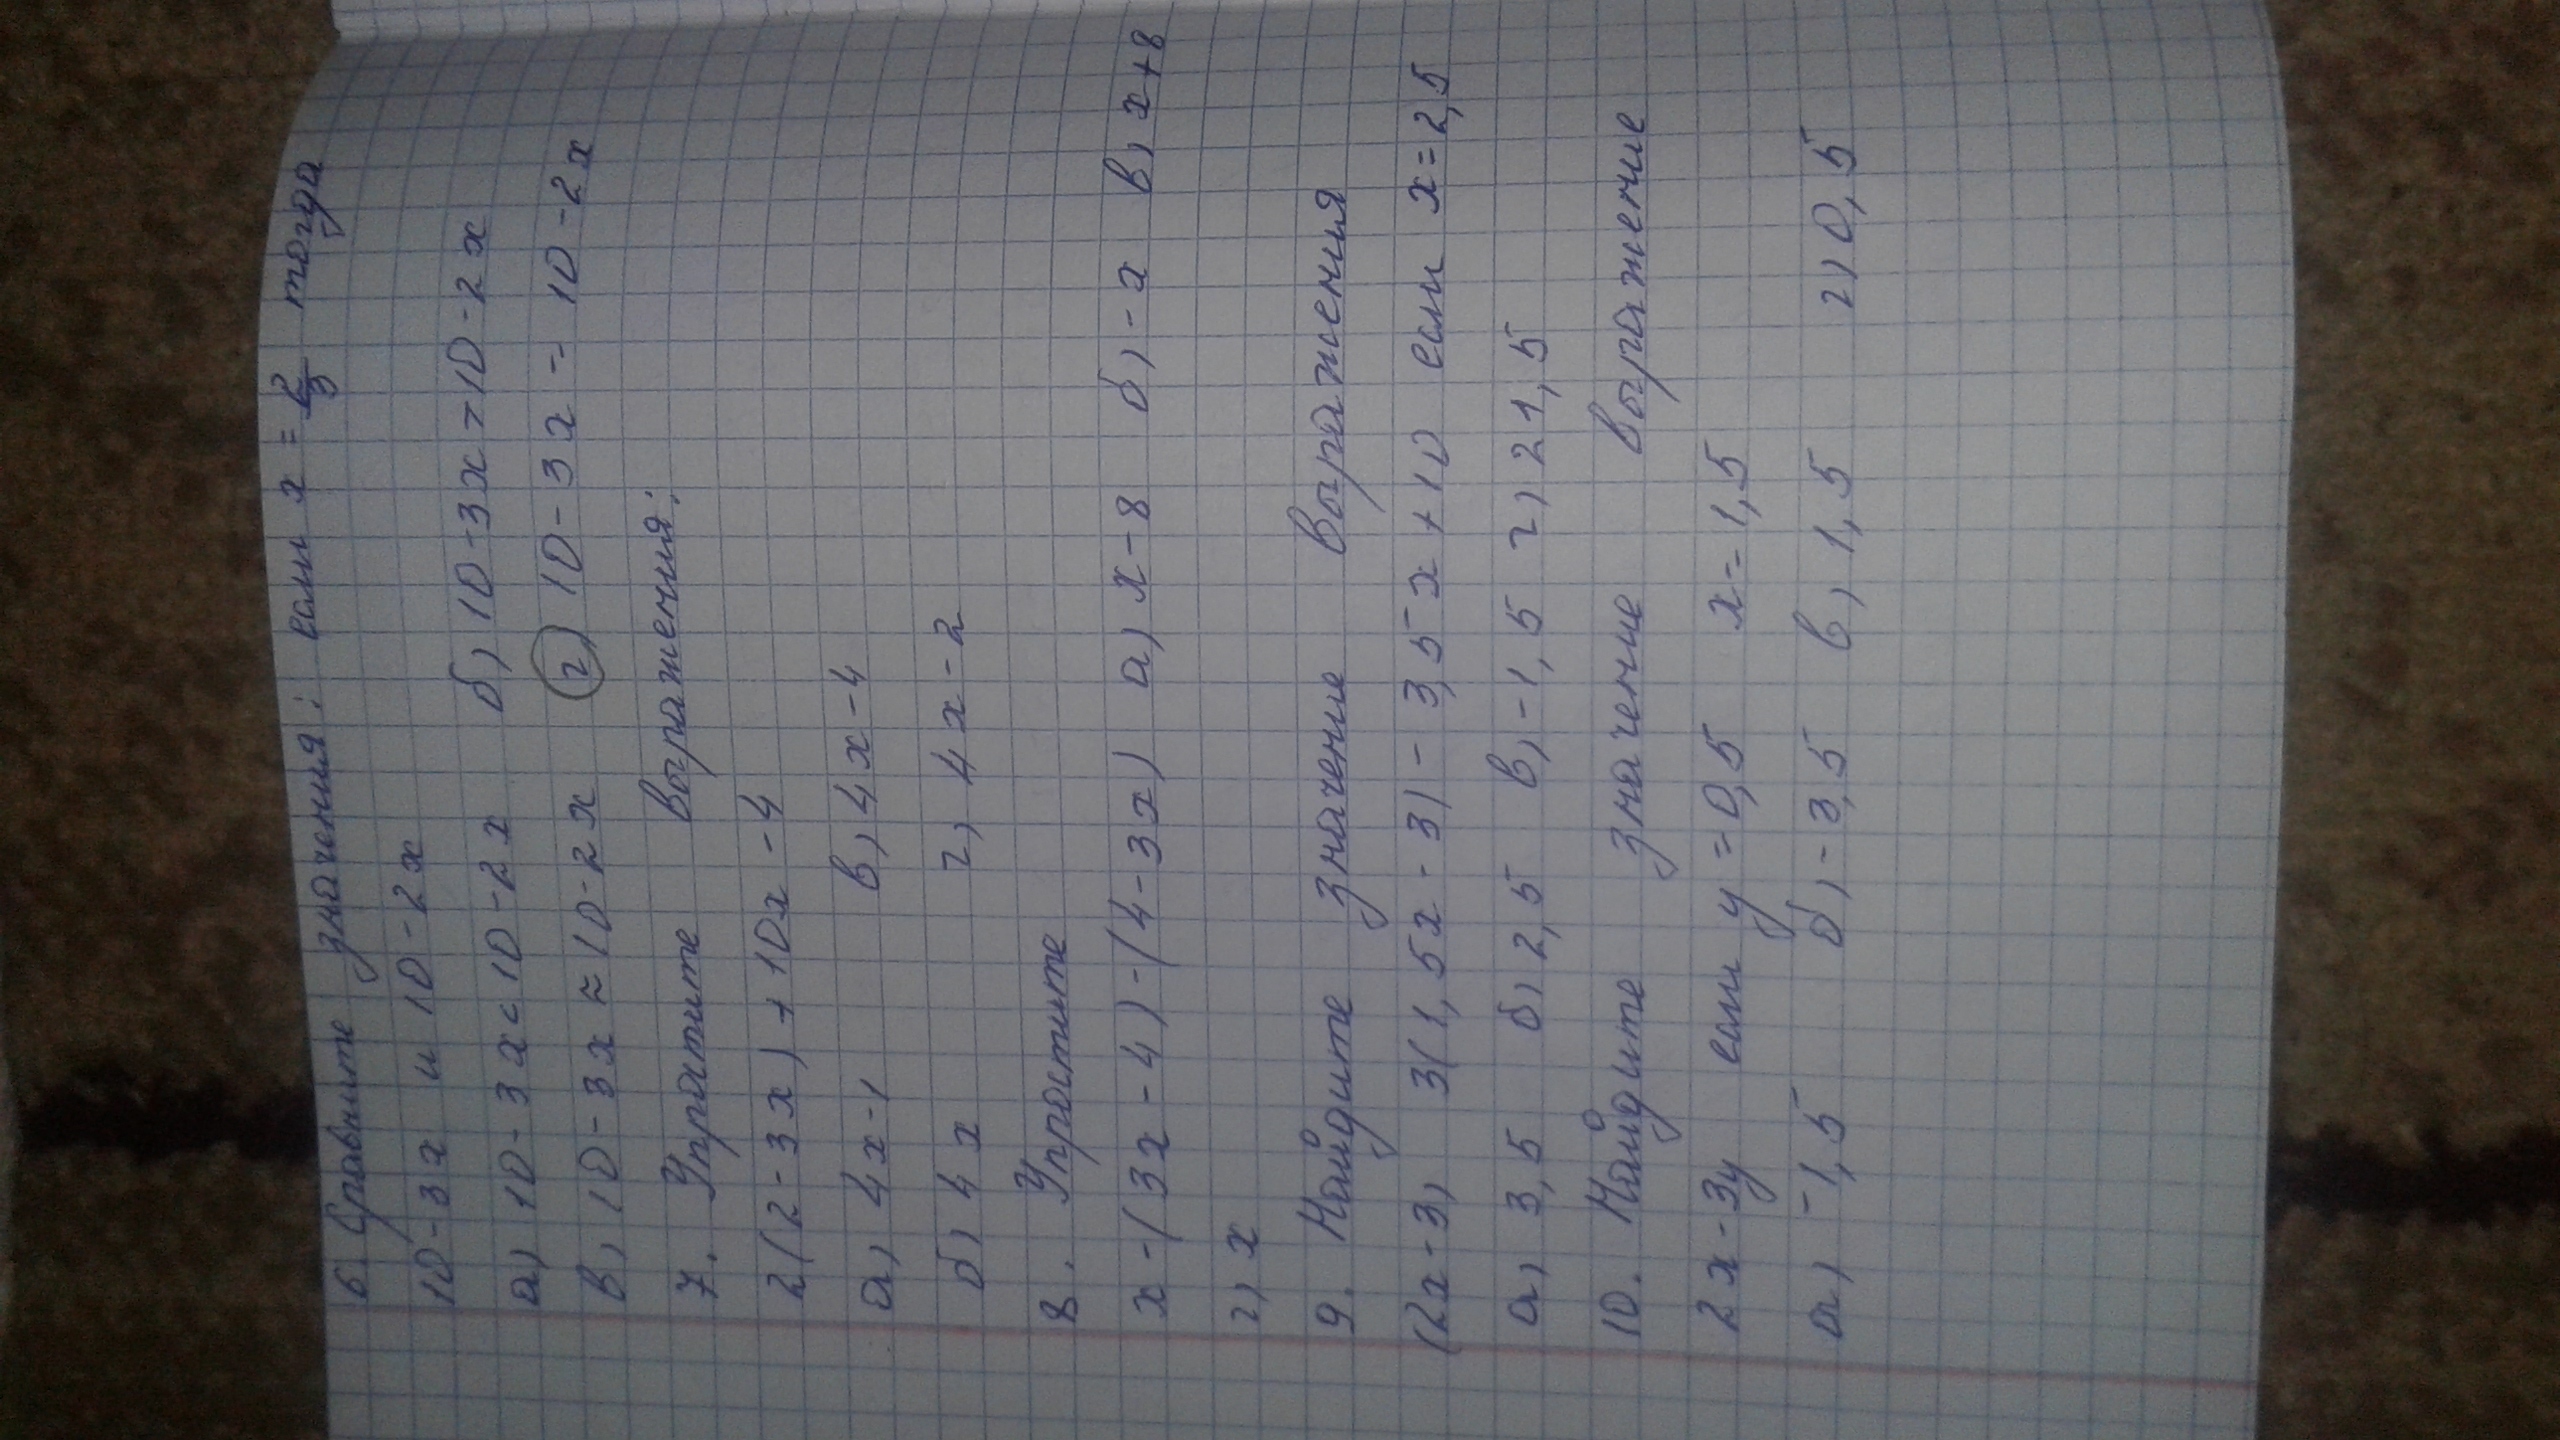 6. Сравните значения: если x = 2/3 тогда
10-3x и 10-2x
а) 10-3x<10-2x б) 10-3x>10-2x
в) 10-3x≈10-2x г) 10-3x=10-2x
7. Упростите выражения:
2(2-3x)+10x-4
а) 4x-1 в) 4x-4
б) 4x г) 4x-2
8. Упростите
x-(3x-4)-(4-3x) а) x-8 б) -x в) x+8
г) x
9. Найдите значение выражения
(2x-3) 3(1,5x-3)-3,5x+10 если x=2,5
а) 3,5 б) 2,5 в) -1,5 г) 21,5
10. Найдите значение выражение
2x-3y если y=0,5 x=-1,5
а) -1,5 б) -3,5 в) 1,5 г) 0,5